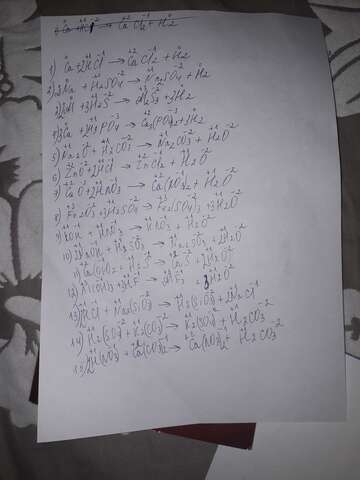 Ca + HCl → CaCl₂ + H₂
1) Ca + 2HCl → CaCl₂ + H₂
2) 2Na + H₂SO₄ → Na₂SO₄ + H₂
3) 2Al + 3H₂S → Al₂S₃ + 3H₂
4) 3Ca + 2H₃PO₄ → Ca₃(PO₄)₂ + 3H₂
5) Na₂O + H₂CO₃ → Na₂CO₃ + H₂O
6) ZnO + 2HCl → ZnCl₂ + H₂O
7) CaO + 2HNO₃ → Ca(NO₃)₂ + H₂O
8) Fe₂O₃ + 3H₂SO₄ → Fe₂(SO₄)₃ + 3H₂O
9) KOH + HNO₃ → KNO₃ + H₂O
10) 2NaOH + H₂SO₃ → Na₂SO₃ + 2H₂O
11) Ca(OH)₂ + H₂S → CaS + 2H₂O
12) Al(OH)₃ + 3HF → AlF₃ + 3H₂O
13) 2HCl + Na₂(SiO₃) → H₂(SiO₃) + 2NaCl
14) H₂(SO₄) + K₂(CO₃) → K₂(SO₄) + H₂CO₃
15) 2H(NO₃) + Ca(CO₃) → Ca(NO₃)₂ + H₂CO₃